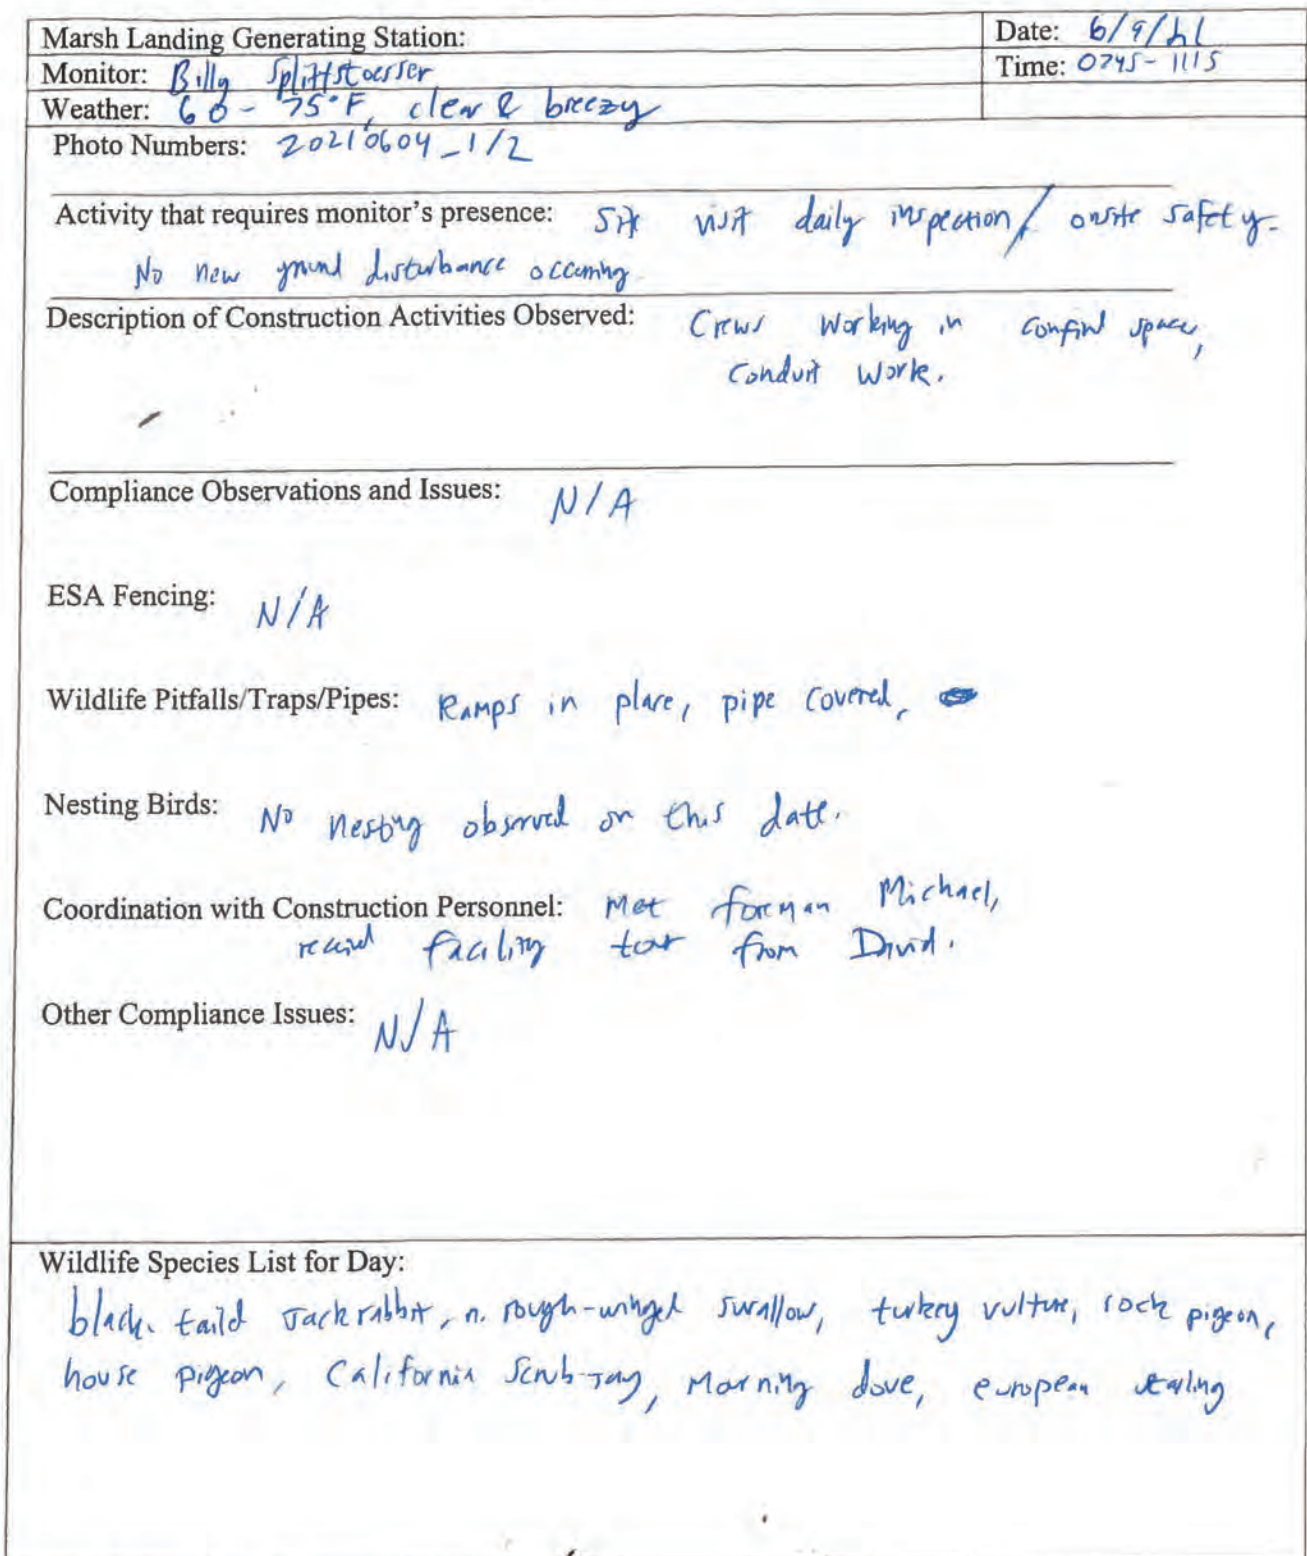 Marsh Landing Generating Station:
Date: 6/9/21
Monitor: Billy Splittstoesser
Time: 0745-1115
Weather: 60-75°F, clear & breezy
Photo Numbers: 20210604_1/2
Activity that requires monitor's presence: Site visit daily inspection/onsite safety.
No new ground disturbance occurring
Description of Construction Activities Observed: Crews working in confined spaces,
conduit work.
Compliance Observations and Issues: N/A
ESA Fencing: N/A
Wildlife Pitfalls/Traps/Pipes: Ramps in place, pipe covered,
Nesting Birds: No nesting observed on this date.
Coordination with Construction Personnel: Met foreman Michael,
received facility tour from David.
Other Compliance Issues: N/A
Wildlife Species List for Day:
black-tailed Jackrabbit, n. rough-winged swallow, turkey vulture, rock pigeon,
house pigeon, California Scrub-Jay, Mourning dove, european starling